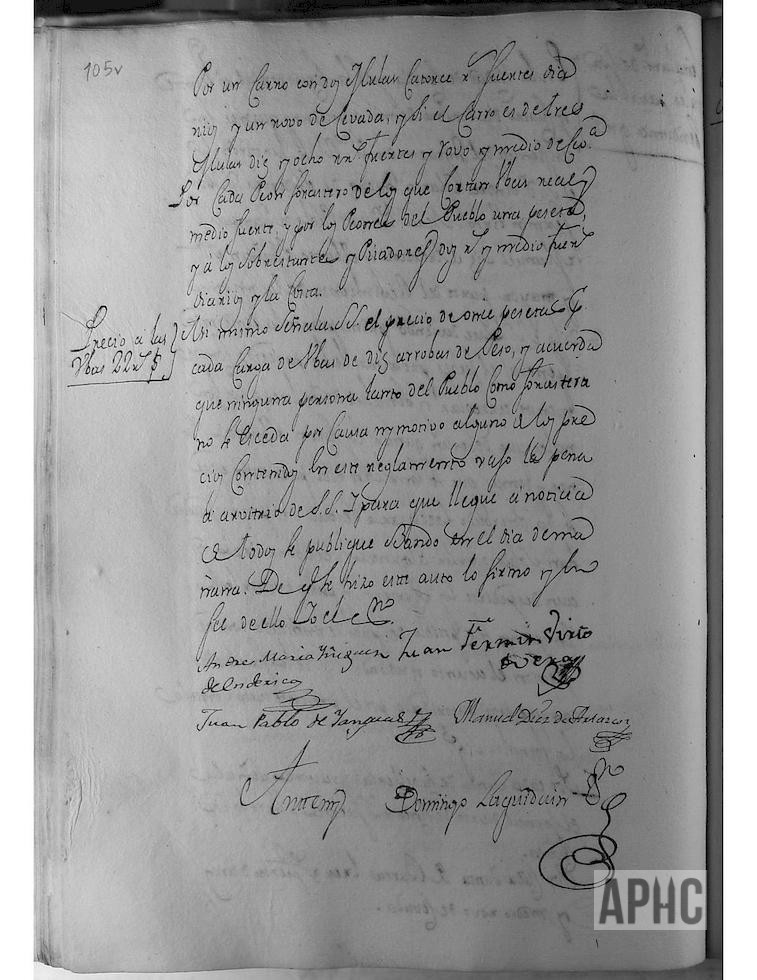 105v
Por un Carro con dos Mulas Catorce r.s fuertes dia
rios y un rovo de Cevada, y si el Carro es de tres
Mulas diez y ocho r.s fuertes y rovo y medio de Cev.a
Por Cada Peon forastero de los que Cortan Ubas real y
medio fuerte, y por los Peones del Pueblo una peseta,
y a los Sobrestantes y Pisadores dos r.s y medio fuer.s
diarios y la Costa.
Precio a las
Ubas 22 r.s
Asi mismo Señala S.S. el precio de once pesetas p.r
cada Carga de Ubas de diez arrobas de Peso, y acuerda
que ninguna persona tanto del Pueblo Como forastera
no se esceda por Causa ny motivo alguno a los pre
cios Contenidos en este reglamento vajo la pena
a arvitrio de S.S. Y para que llegue a noticia
de todos se publique Bando en el dia de ma
ñana. De q.e se hizo este auto lo firmo y en
fee de ello Yo el Es.no
Andres Maria Yñiguez Juan Fermin Virto
de Vera
Juan Pablo de Yanguas Manuel Diez de
Antemi Domingo Laguidain Es.no
APHC